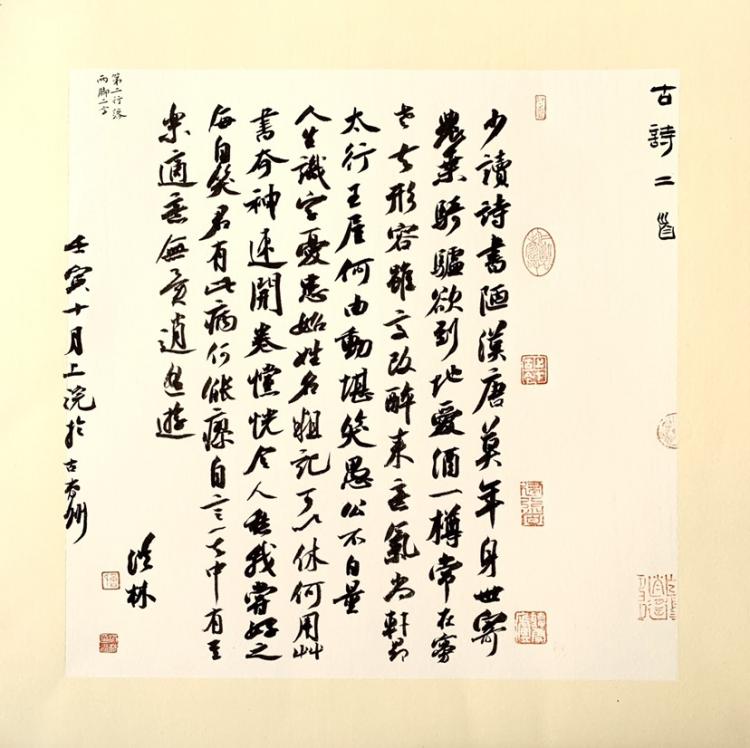 古詩二首
少讀詩書陋漢唐莫年身世寄
農桑騎驢欲到地愛酒一樽常在旁
老去形容雖变改醉来意氣尚軒昂
太行王屋何由動堪笑愚公不自量
人生識字憂患始姓名粗記可以休何用艸
書夸神速開卷惝恍令人愁我嘗好之
每自笑君有此病何能瘳自言其中有至
樂適意無異逍遥遊
第二行落
兩脚二字
壬寅十月上浣於古秀州
林